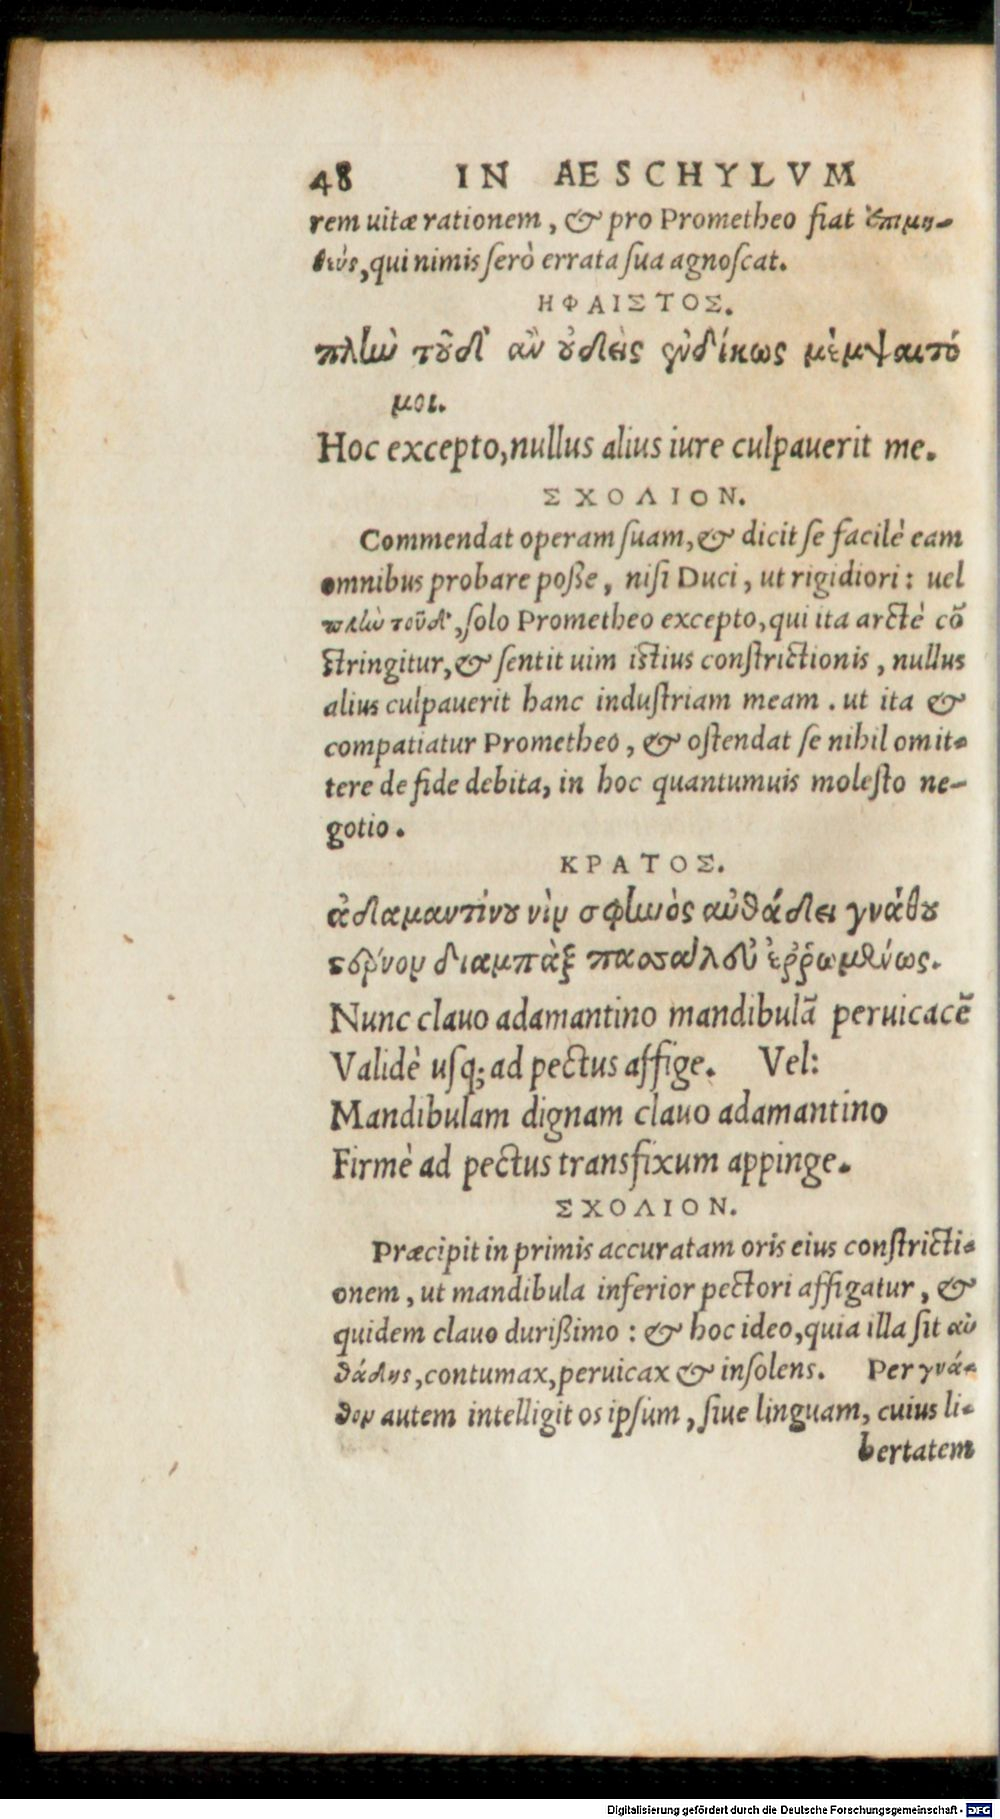 48 IN AESCHYLVM
rem uitæ rationem, & pro Prometheo fiat ἐπιμη-
θεύς, qui nimis ſerò errata ſua agnoſcat.
ΗΦΑΙΣΤΟΣ.
πλὴν τοῦδ' ἂν οὐδεὶς ἐνδίκως μέμψαιτό
μοι.
Hoc excepto, nullus alius iure culpauerit me.
ΣΧΟΛΙΟΝ.
Commendat operam ſuam, & dicit ſe facilè eam
omnibus probare poſſe, niſi Duci, ut rigidiori: uel
πλὴν τοῦδ', ſolo Prometheo excepto, qui ita arctè cõ
ſtringitur, & ſentit uim iſtius conſtrictionis, nullus
alius culpauerit hanc induſtriam meam. ut ita &
compatiatur Prometheo, & oſtendat ſe nihil omit-
tere de fide debita, in hoc quantumuis moleſto ne-
gotio.
ΚΡΑΤΟΣ.
ἀδαμαντίνου νῦν σφηνὸς αὐθάδει γνάθου
στέρνον διαμπὰξ πασσάλευ' ἐῤῥωμένως.
Nunc clauo adamantino mandibulã peruicacẽ
Validè uſq; ad pectus affige. Vel:
Mandibulam dignam clauo adamantino
Firmè ad pectus transfixum appinge.
ΣΧΟΛΙΟΝ.
Præcipit in primis accuratam oris eius conſtricti-
onem, ut mandibula inferior pectori affigatur, &
quidem clauo duriſſimo: & hoc ideo, quia illa ſit αὐ
θάδης, contumax, peruicax & inſolens. Per γνά-
θον autem intelligit os ipſum, ſiue linguam, cuius li-
bertatem
Digitalisierung gefördert durch die Deutsche Forschungsgemeinschaft - DFG